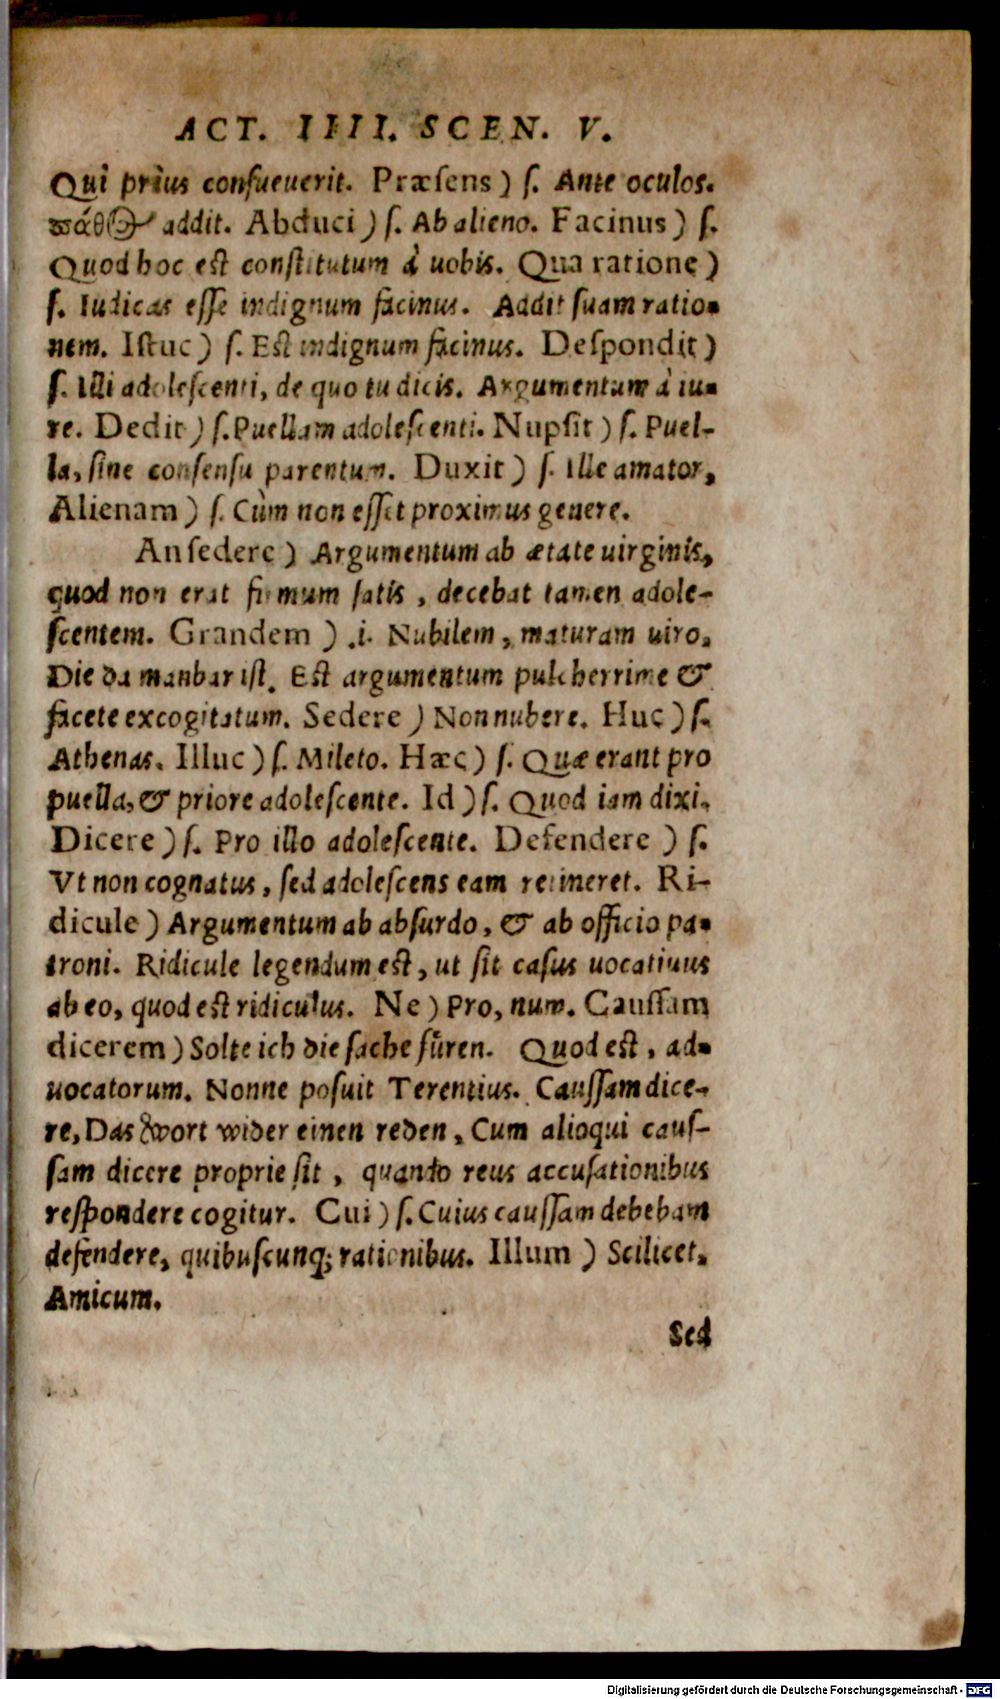 ACT. IIII. SCEN. V.
Qui priùs consueuerit. Præsens) ſ. Ante oculos.
πάθος addit. Abduci) ſ. Ab alieno. Facinus) ſ.
Quod hoc est constitutum à uobis. Qua ratione)
ſ. Iudicas esse indignum facinus. Addit suam ratio-
nem. Istuc) ſ. Est indignum facinus. Despondit)
ſ. Illi adolescenti, de quo tu dicis. Argumentum à iu-
re. Dedit) ſ. Puellam adolescenti. Nupsit) ſ. Puel-
la, sine consensu parentum. Duxit) ſ. Ille amator,
Alienam) ſ. Cùm non esset proximus genere.
An sedere) Argumentum ab ætate uirginis,
quod non erat firmum satis, decebat tamen adole-
scentem. Grandem) .i. Nubilem, maturam uiro.
Die da manbar ist. Est argumentum pulcherrime &
facete excogitatum. Sedere) Non nubere. Huc) ſ.
Athenas. Illuc) ſ. Mileto. Hæc) ſ. Quæ erant pro
puella, & priore adolescente. Id) ſ. Quod iam dixi.
Dicere) ſ. Pro illo adolescente. Defendere) ſ.
Vt non cognatus, sed adolescens eam retineret. Ri-
dicule) Argumentum ab absurdo, & ab officio pa-
troni. Ridicule legendum est, ut sit casus uocatiuus
ab eo, quod est ridiculus. Ne) Pro, num. Caussam
dicerem) Solte ich die sache füren. Quod est, ad-
uocatorum. Nonne posuit Terentius. Caussam dice-
re, Das wort wider einen reden, Cum alioqui caus-
sam dicere proprie sit, quando reus accusationibus
respondere cogitur. Cui) ſ. Cuius caussam debebam
defendere, quibuscunq; rationibus. Illum) Scilicet.
Amicum.
Sed
Digitalisierung gefördert durch die Deutsche Forschungsgemeinschaft - DFG